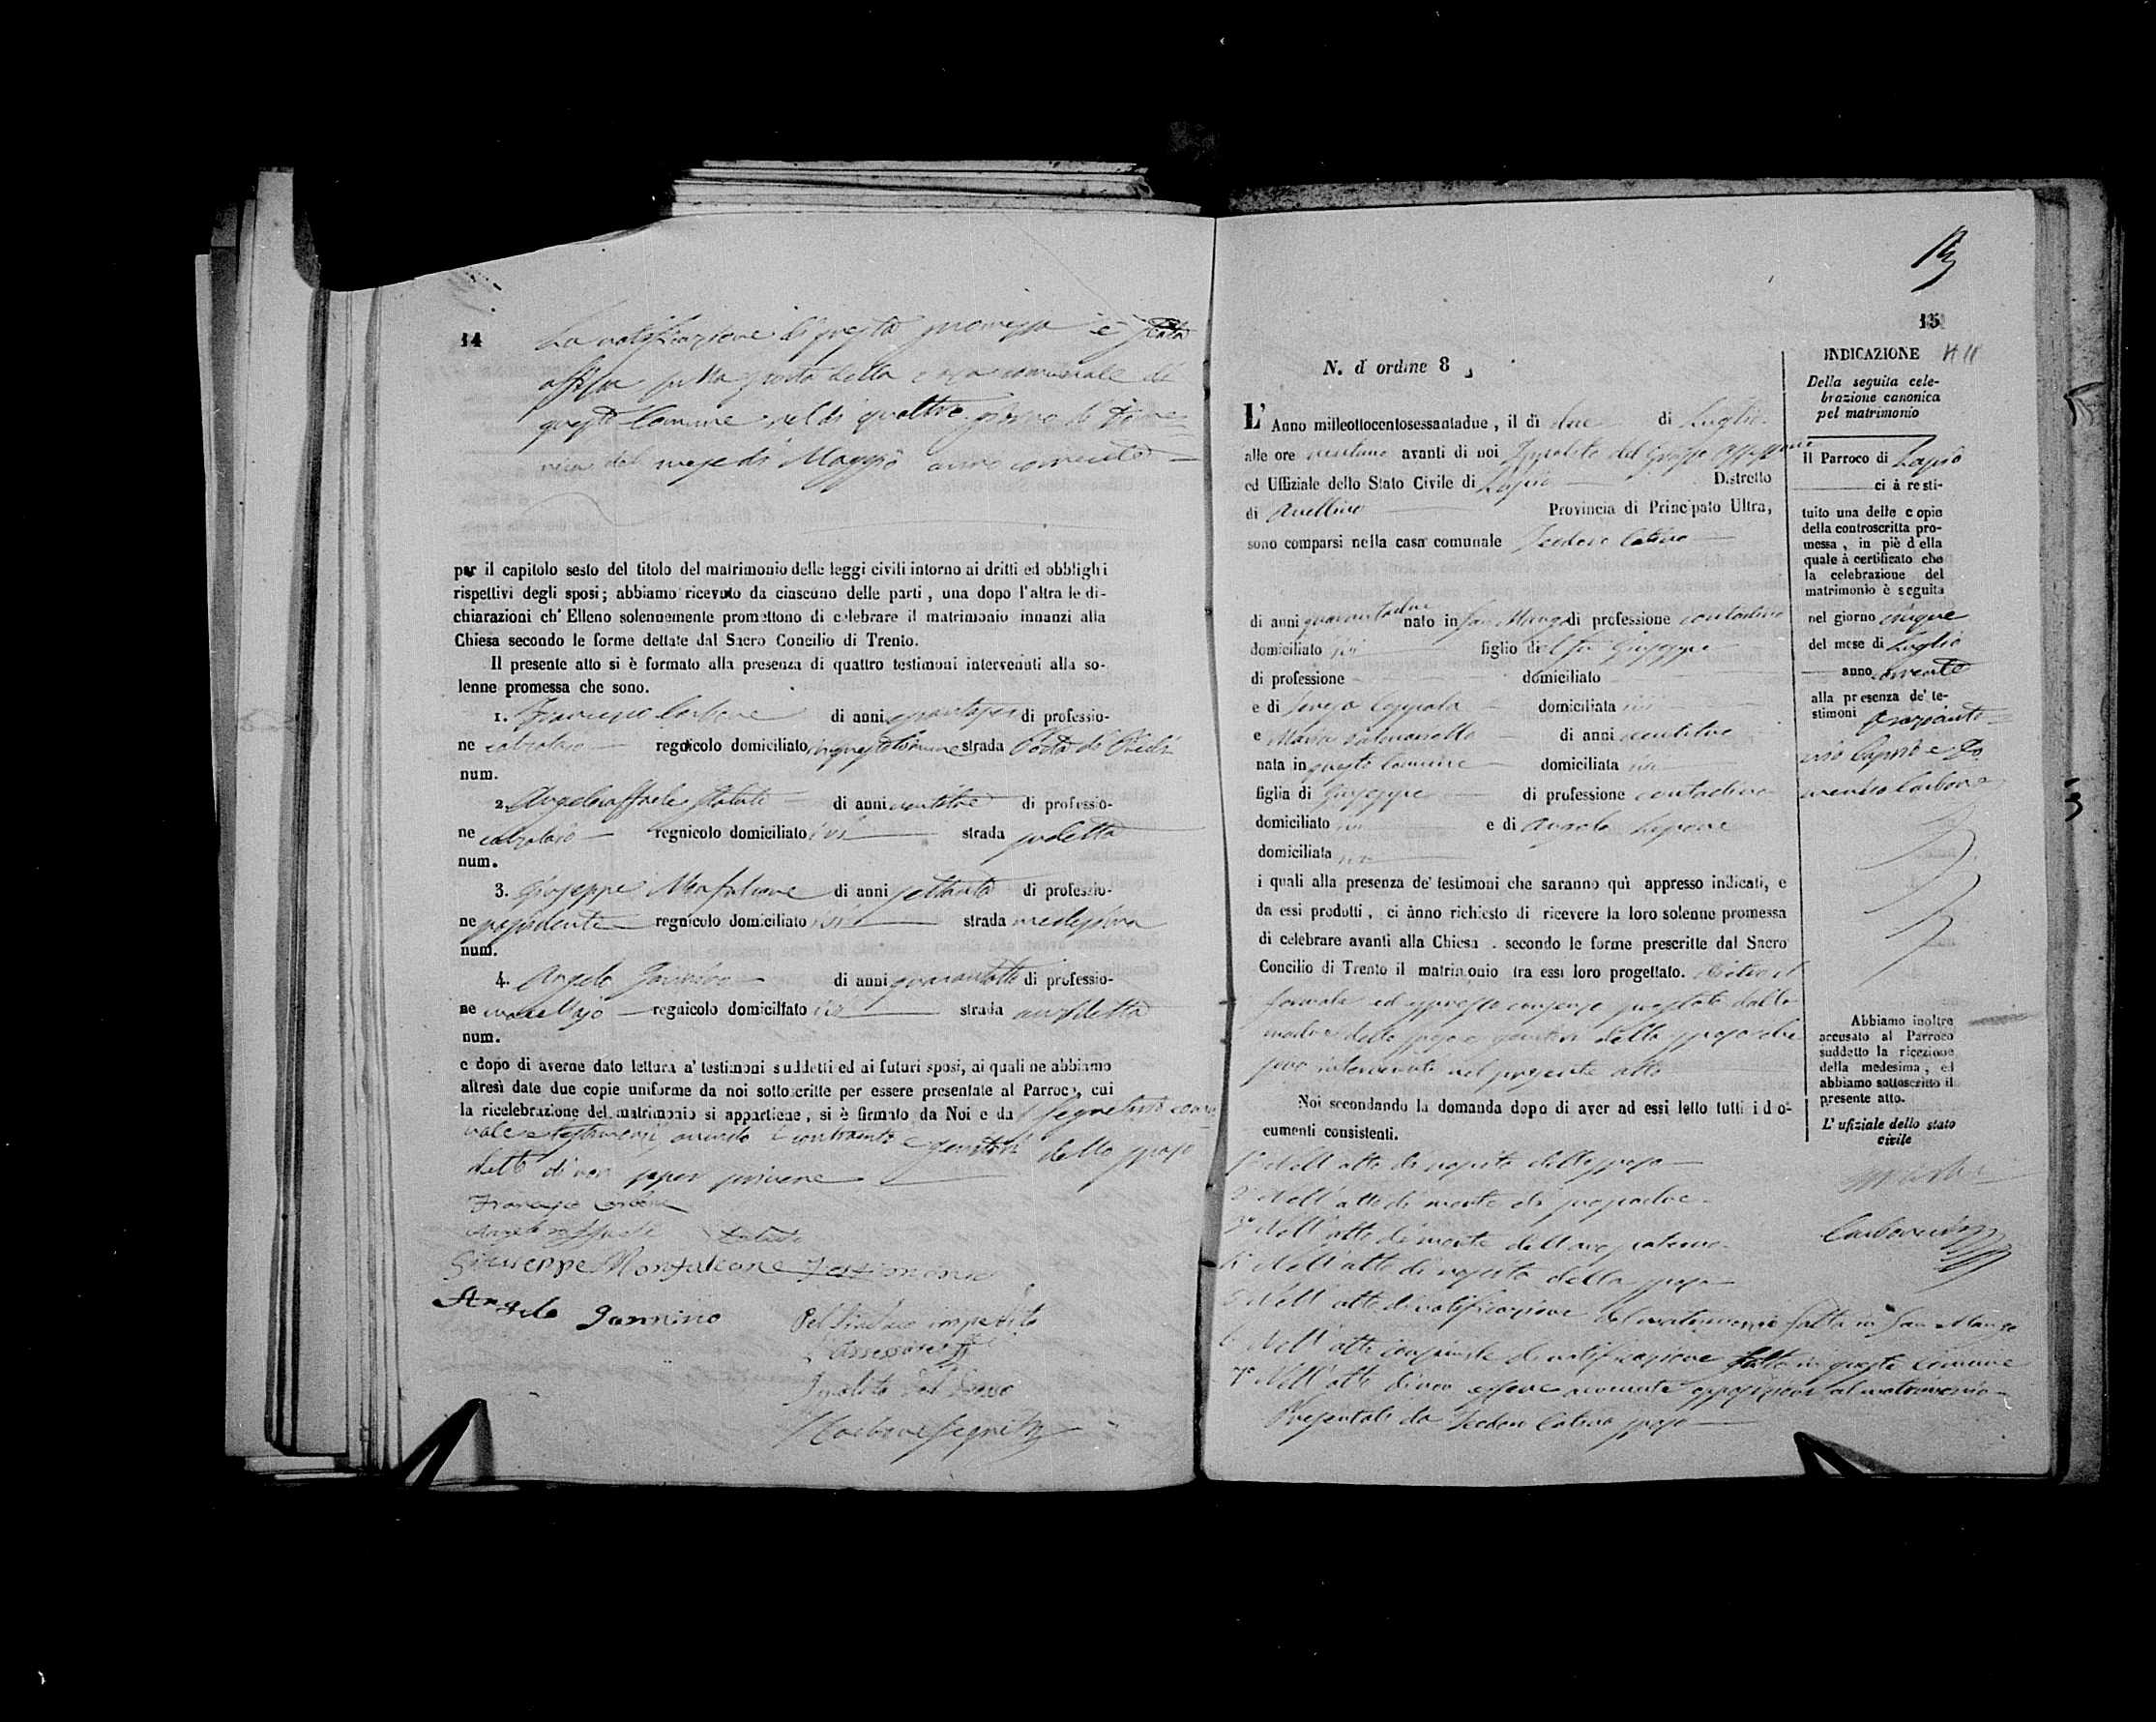 14
La notificazione di questa promessa è stata
affissa sulla porta della casa comunale di
questo Comune nel dì quattro giorno di Dome=
nica del mese di Maggio anno corrente
per il capitolo sesto del titolo del matrimonio delle leggi civili intorno ai dritti ed obblighi
rispettivi degli sposi; abbiamo ricevuto da ciascuno delle parti, una dopo l'altra le di-
chiarazioni ch' Elleno solennemente promettono di celebrare il matrimonio innanzi alla
Chiesa secondo le forme dettate dal Sacro Concilio di Trento.
Il presente atto si è formato alla presenza di quattro testimoni intervenuti alla so-
lenne promessa che sono.
1. Francesco Carbone di anni di professio-
ne calzolaio regnicolo domiciliato in questo Comune strada Porta di
num.
2. Angeloraffaele di anni ventitre di professio-
ne calzolaio regnicolo domiciliato ivi strada sudetta
num.
3. Giuseppe Monfalcone di anni settanta di professio-
ne possidente regnicolo domiciliato ivi strada medesima
num.
4. Angelo Jannino di anni quarantotto di professio-
ne regnicolo domiciliato ivi strada anzidetta
num.
e dopo di averne dato lettura a' testimoni suddetti ed ai futuri sposi, ai quali ne abbiamo
altresì date due copie uniforme da noi sottoscritte per essere presentate al Parroco, cui
la ricelebrazione del matrimonio si appartiene, si è firmato da Noi e da Segretario comu=
nale e testimonj avendo i contraenti e genitori dello sposo
detto di non saper scrivere
Francesco Carbone
Giuseppe Monfalcone Testimonio
Angelo Jannino
Pel Sindaco impedito
L'assessore
Ippolito Del Grosso
Carbone Segret
15
N. d ordine 8
L' Anno milleottocentosessantadue, il dì due di Luglio
alle ore ventuno avanti di noi Ippolito del Grosso Assessore
ed Uffiziale dello Stato Civile di Lapio Distretto
di Avellino Provincia di Principato Ultra,
sono comparsi nella casa comunale
di anni quarantadue nato in San Mango di professione contadino
domiciliato ivi figlio del fu Giuseppe
di professione domiciliato
e di Teresa Coppola domiciliata ivi
e Maria di anni ventitre
nata in questo Comune domiciliata ivi
figlia di Giuseppe di professione contadino
domiciliato ivi e di Angela
domiciliata ivi
i quali alla presenza de' testimoni che saranno quì appresso indicati, e
da essi prodotti, ci ànno richiesto di ricevere la loro solenne promessa
di celebrare avanti alla Chiesa secondo le forme prescritte dal Sacro
Concilio di Trento il matrimonio tra essi loro progettato. dietro il
formale ed espresso consenso prestato dalla
madre dello sposo e genitori della sposa che
sono intervenuti nel presente atto
Noi secondando la domanda dopo di aver ad essi letto tutti i do-
cumenti consistenti.
1° Nell'atto di nascita dello sposo
2° Nell'atto di morte di suo padre
3° Nell'atto di morte dell'avo paterno
4° Nell'atto di nascita della sposa
5° Nell'atto di notificazione del matrimonio fatta in San Mango
6° Nell'atto consimile di notificazione fatta in questo Comune
7° Nell'atto di non essere avvenuta opposizione al matrimonio
Presentati da sposo
INDICAZIONE
Della seguita cele-
brazione canonica
pel matrimonio
Il Parroco di Lapio
ci à resti-
tuito una delle copie
della controscritta pro-
messa, in piè della
quale à certificato che
la celebrazione del
matrimonio è seguita
nel giorno cinque
del mese di Luglio
anno corrente
alla presenza de' te-
stimoni
Carbone
Abbiamo inoltre
accusato al Parroco
suddetto la ricezione
della medesima, ed
abbiamo sottoscritto il
presente atto.
L' ufiziale dello stato
civile